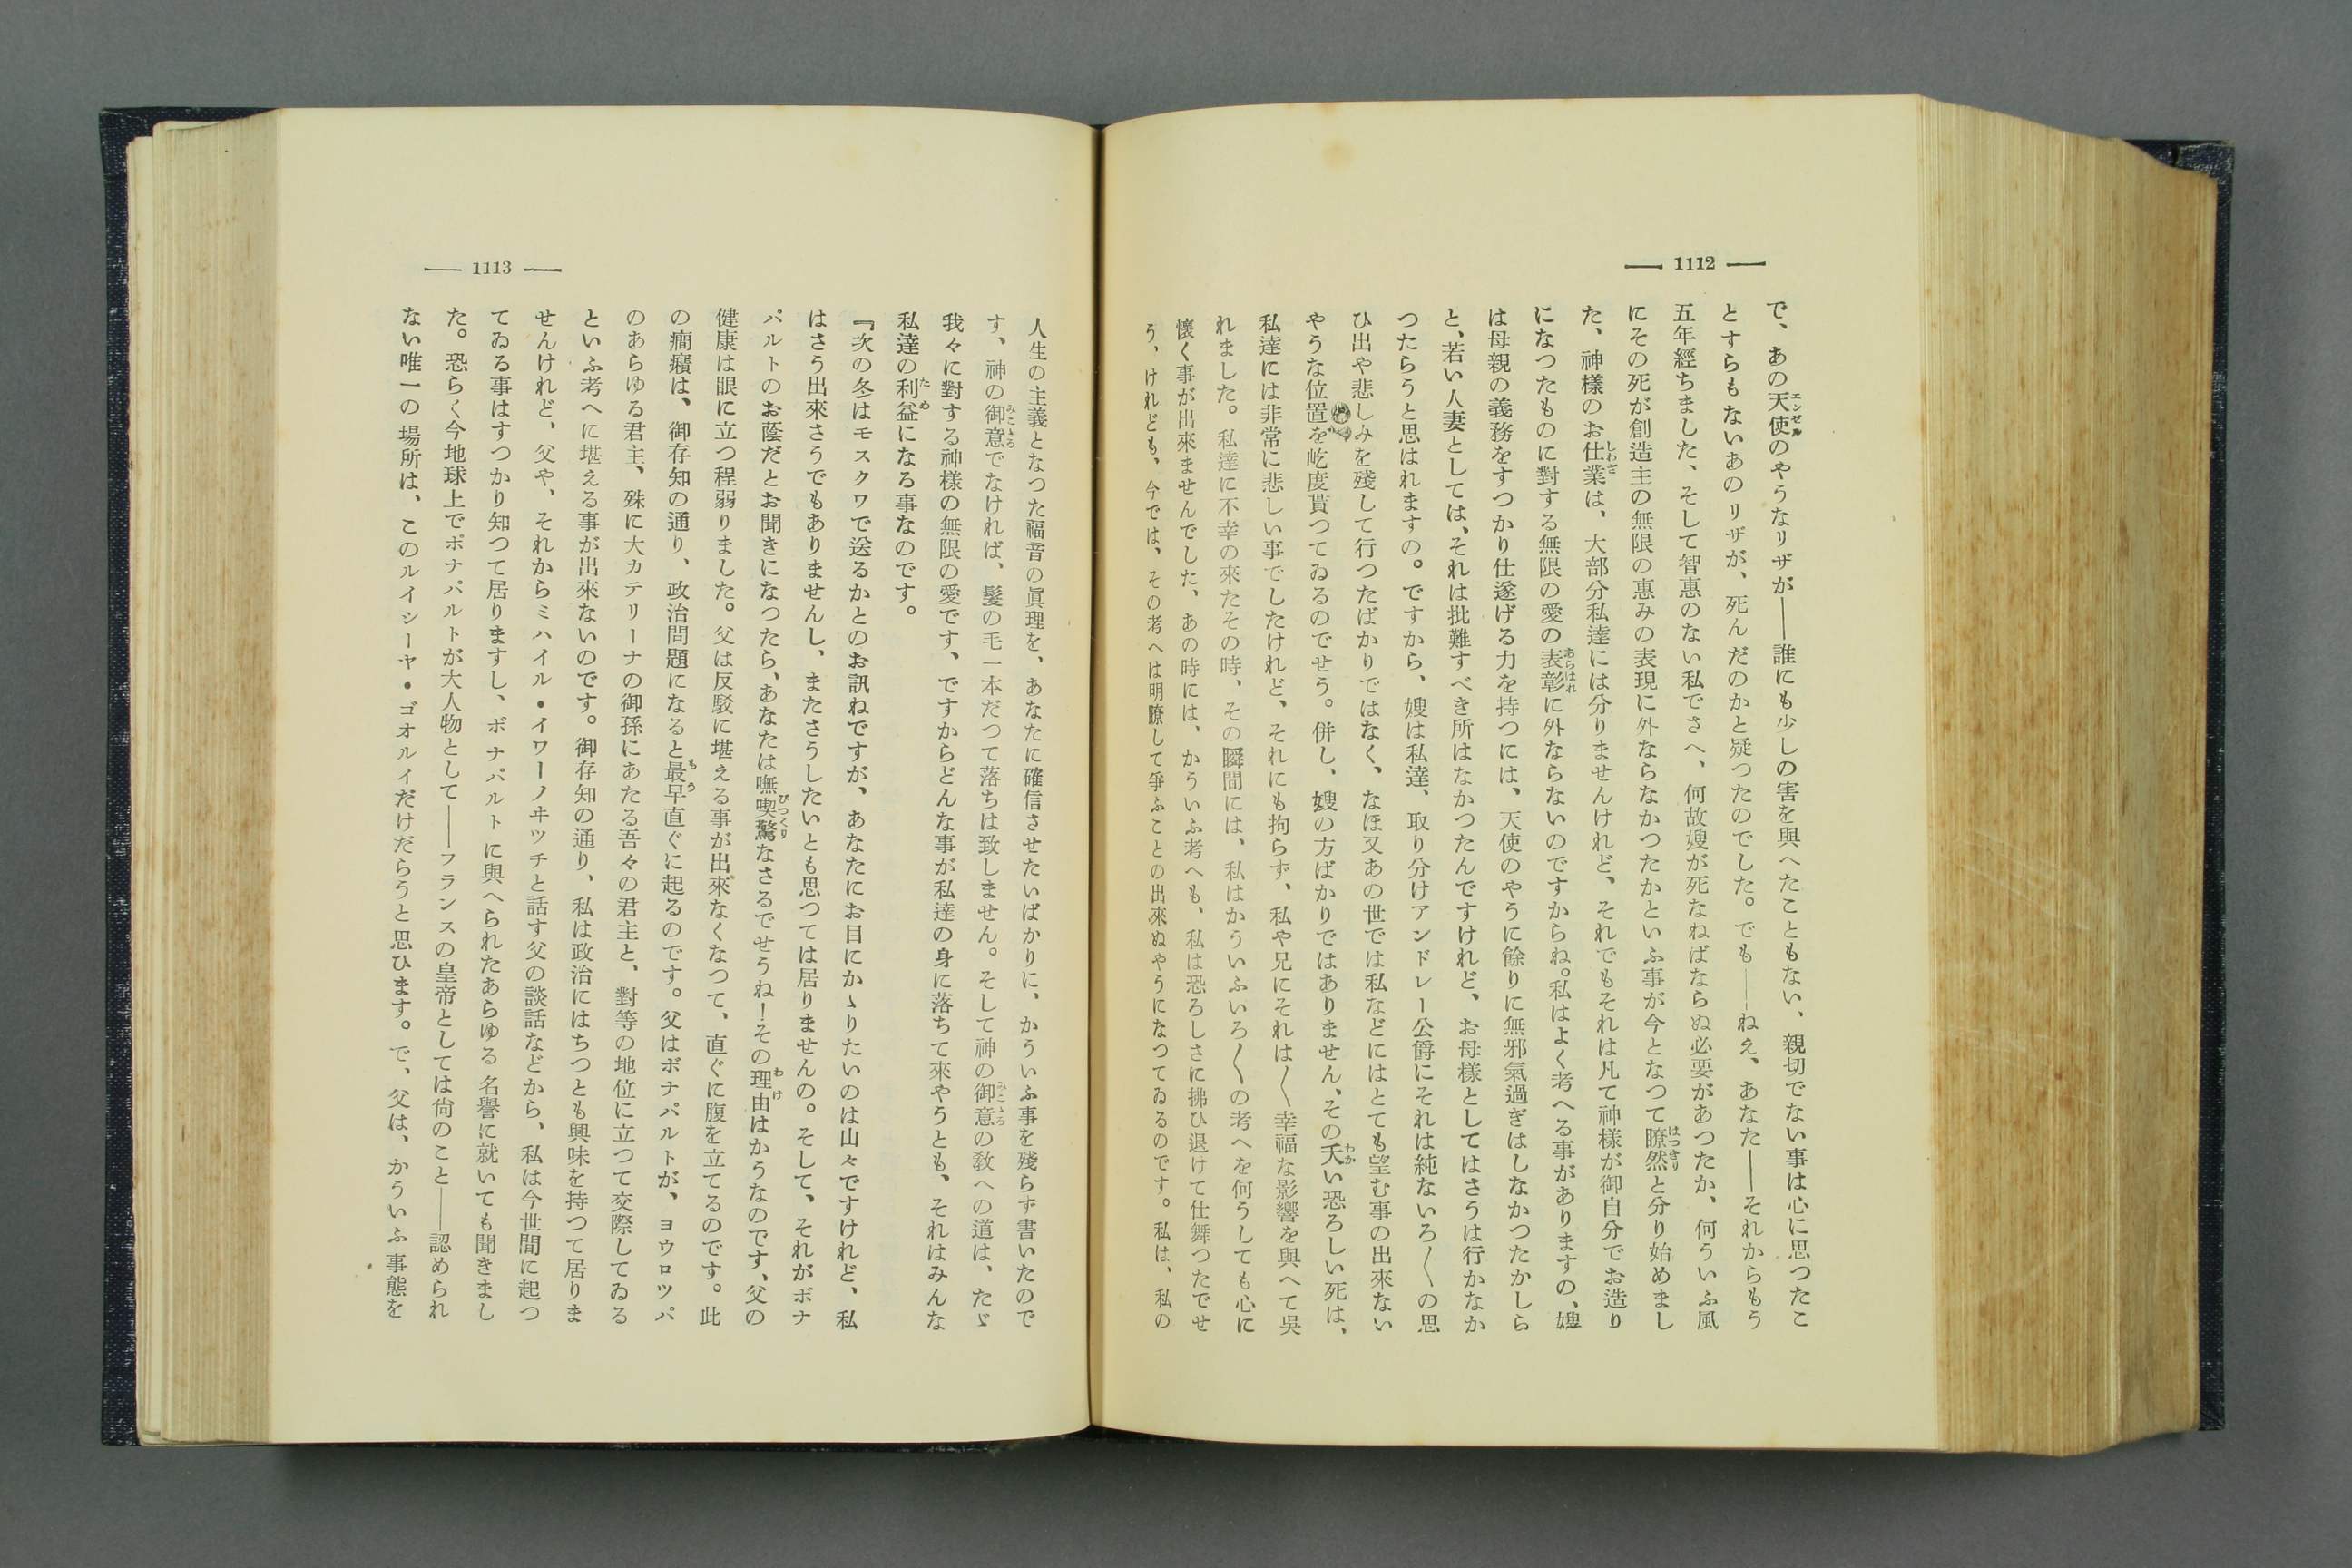 — 1112 —
で、あの天使のやうなリザが——誰にも少しの害を與へたこともない、親切でない事は心に思つたこ
とすらもないあのリザが、死んだのかと疑つたのでした。でも——ねえ、あなた——それからもう
五年經ちました、そして智惠のない私でさへ、何故嫂が死なねばならぬ必要があつたか、何ういふ風
にその死が創造主の無限の惠みの表現に外ならなかつたかといふ事が今となつて瞭然と分り始めまし
た、神樣のお仕業は、大部分私達には分りませんけれど、それでもそれは凡て神樣が御自分でお造り
になつたものに對する無限の愛の表彰に外ならないのですからね。私はよく考へる事がありますの、嫂
は母親の義務をすつかり仕遂げる力を持つには、天使のやうに餘りに無邪氣過ぎはしなかつたかしら
と、若い人妻としては、それは批難すべき所はなかつたんですけれど、お母樣としてはさうは行かなか
つたらうと思はれますの。ですから、嫂は私達、取り分けアンドレー公爵にそれは純ないろ〳〵の思
ひ出や悲しみを殘して行つたばかりではなく、なほ又あの世では私などにはとても望む事の出來ない
やうな位置を屹度貰つてゐるのでせう。併し、嫂の方ばかりではありません、その夭い恐ろしい死は、
私達には非常に悲しい事でしたけれど、それにも拘らず、私や兄にそれは〳〵幸福な影響を與へて吳
れました。私達に不幸の來たその時、その瞬間には、私はかういふいろ〳〵の考へを何うしても心に
懷く事が出來ませんでした、あの時には、かういふ考へも、私は恐ろしさに拂ひ退けて仕舞つたでせ
う、けれども、今では、その考へは明瞭して爭ふことの出來ぬやうになつてゐるのです。私は、私の
— 1113 —
人生の主義となつた福音の眞理を、あなたに確信させたいばかりに、かういふ事を殘らず書いたので
す、神の御意でなければ、髮の毛一本だつて落ちは致しません。そして神の御意の敎への道は、たゞ
我々に對する神樣の無限の愛です、ですからどんな事が私達の身に落ちて來やうとも、それはみんな
私達の利益になる事なのです。
『次の冬はモスクワで送るかとのお訊ねですが、あなたにお目にかゝりたいのは山々ですけれど、私
はさう出來さうでもありませんし、またさうしたいとも思つては居りませんの。そして、それがボナ
パルトのお蔭だとお聞きになつたら、あなたは嘸喫驚なさるでせうね！その理由はかうなのです、父の
健康は眼に立つ程弱りました。父は反駁に堪える事が出來なくなつて、直ぐに腹を立てるのです。此
の癎癪は、御存知の通り、政治問題になると最早直ぐに起るのです。父はボナパルトが、ヨウロツパ
のあらゆる君主、殊に大カテリーナの御孫にあたる吾々の君主と、對等の地位に立つて交際してゐる
といふ考へに堪える事が出來ないのです。御存知の通り、私は政治にはちつとも興味を持つて居りま
せんけれど、父や、それからミハイル・イワーノヰツチと話す父の談話などから、私は今世間に起つ
てゐる事はすつかり知つて居りますし、ボナパルトに與へられたあらゆる名譽に就いても聞きまし
た。恐らく今地球上でボナパルトが大人物として——フランスの皇帝としては尙のこと——認められ
ない唯一の場所は、このルイシーヤ・ゴオルイだけだらうと思ひます。で、父は、かういふ事態を